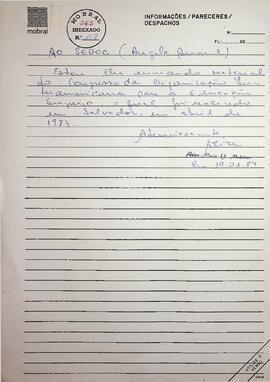 mobral
MOBRAL
365
INDEXADO
INFORMAÇÕES / PARECERES /
DESPACHOS
Nº
FL.: DE
Ao SEDOC (Angela
Estou lhe enviando material
do Congresso da Organização
teramericana para a Educação
o qual foi realizado
em Salvador, em abril de
1983.
Atenciosamente,
Em 19.01.84
UTILIZE O
VERSO